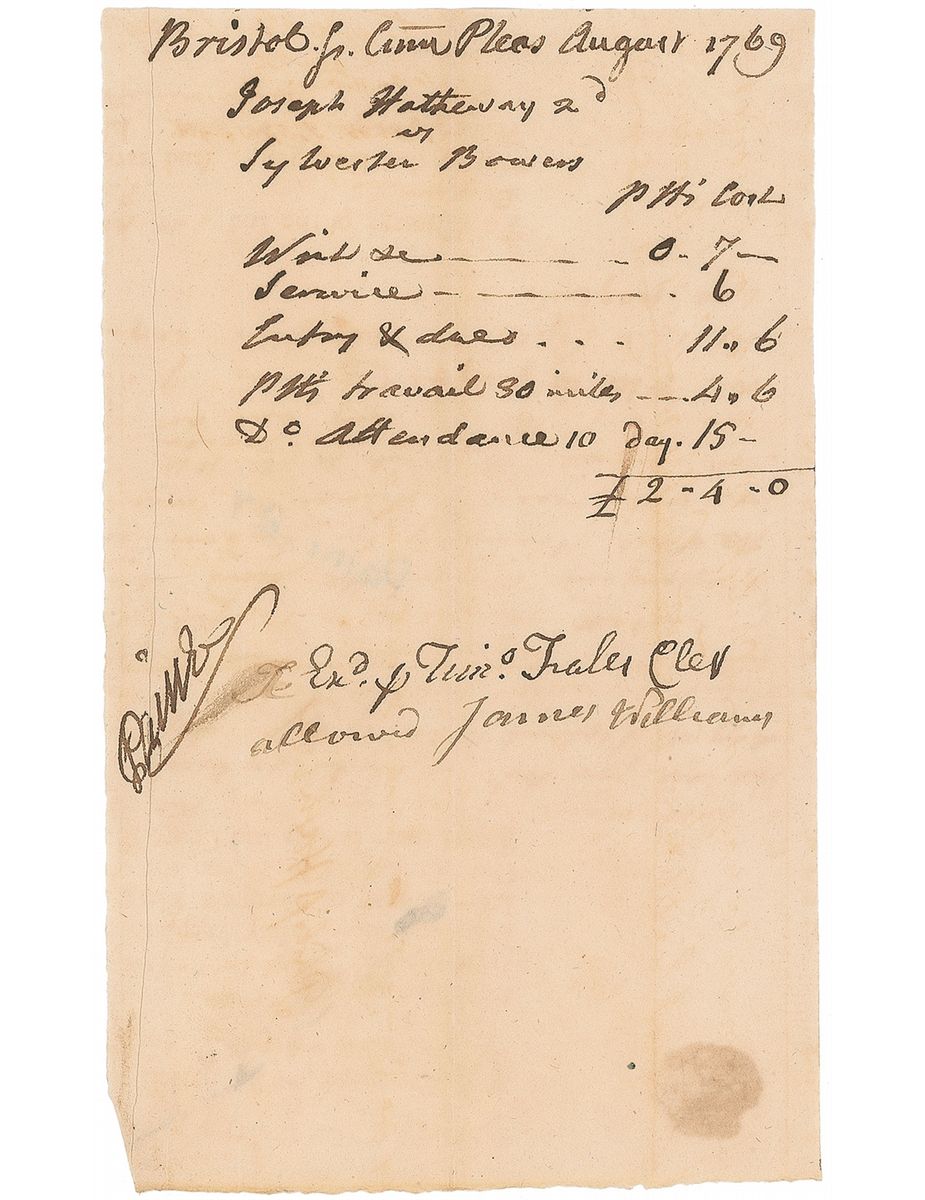 Bristol. Ss. Com Pleas August 1769
Joseph Hatheway 2d
vs
Sylvester Bowers
Pltfs Cost
Writ &c - - - - - - 0 - 7 -
Service - - - - - - . 6
Entry & dues . . . 11 " 6
Pltfs travail 30 miles - - - 4 " 6
Do Attendance 10 day . 15 -
£ 2 - 4 - 0
Exd. p Timo. Fales Cler
allowed James Williams